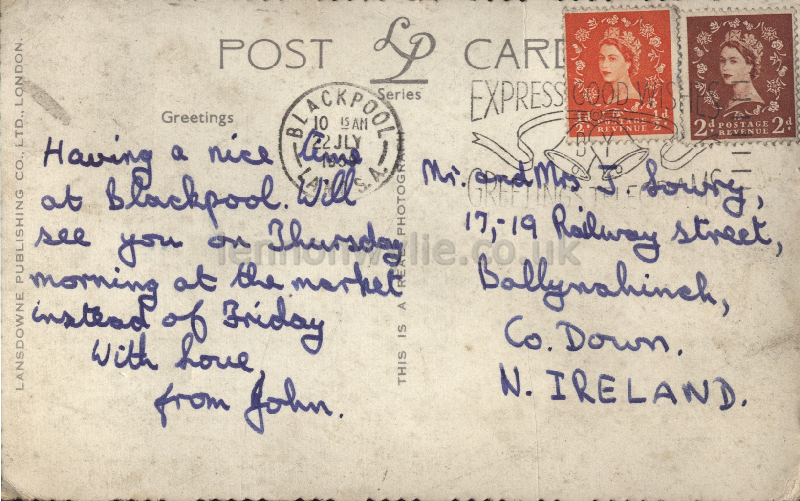 POST CARD
LP
Series
LANSDOWNE PUBLISHING CO., LTD., LONDON.
Greetings
Having a nice time
at Blackpool. Will
see you on Thursday
morning at the market
instead of Friday
With love,
from John.
THIS IS A REAL PHOTOGRAPH
BLACKPOOL
10 15 AM
22 JLY
LANCS.
EXPRESS GOOD WISHES
BY
GREETINGS TELEGRAMS
½d ½d
POSTAGE
REVENUE
2d 2d
POSTAGE
REVENUE
Mr. and Mrs J Lowry,
17,-19 Railway street,
Ballynahinch,
Co. Down.
N. IRELAND.
lennonwylie.co.uk